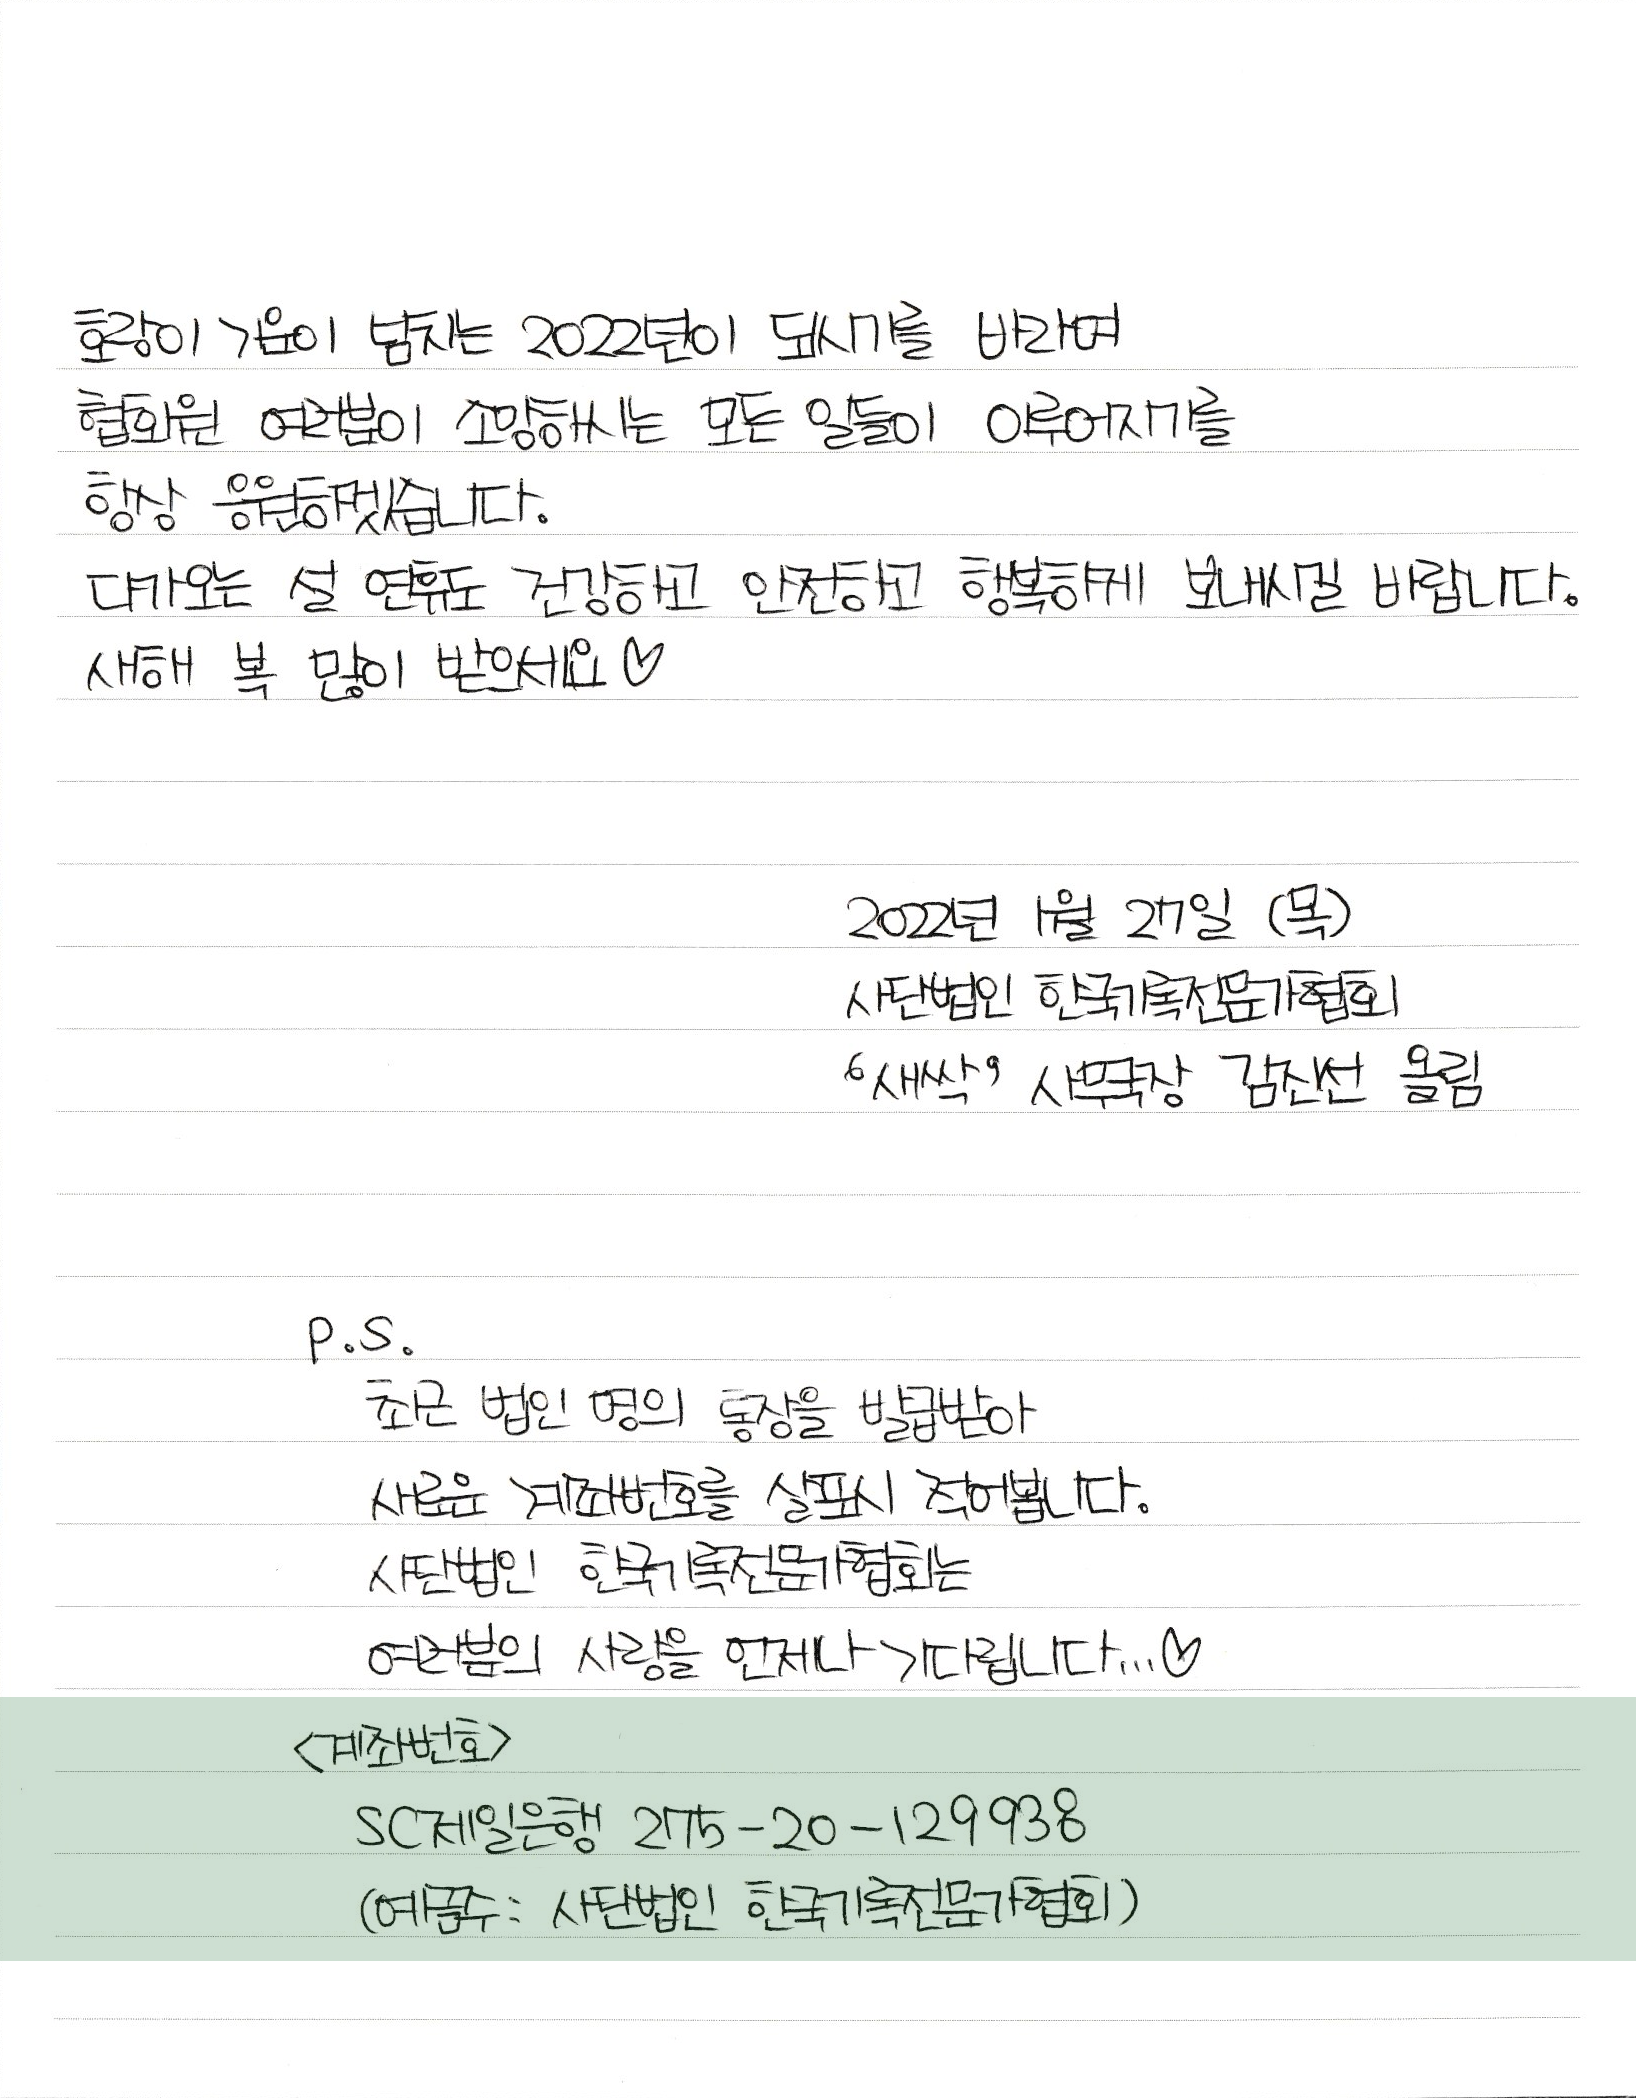 호랑이 기운이 넘치는 2022년이 되시기를 바라며
협회원 여러분이 소망하시는 모든 일들이 이루어지기를
항상 응원하겠습니다.
다가오는 설 연휴도 건강하고 안전하고 행복하게 보내시길 바랍니다.
새해 복 많이 받으세요♡
2022년 1월 27일 (목)
사단법인 한국기록전문가협회
‘새싹’ 사무국장 김진선 올림
P.S.
최근 법인 명의 통장을 발급받아
새로운 계좌번호를 살포시 적어봅니다.
사단법인 한국기록전문가협회는
여러분의 사랑을 언제나 기다립니다...♡
<계좌번호>
SC제일은행 275-20-129938
(예금주: 사단법인 한국기록전문가협회)